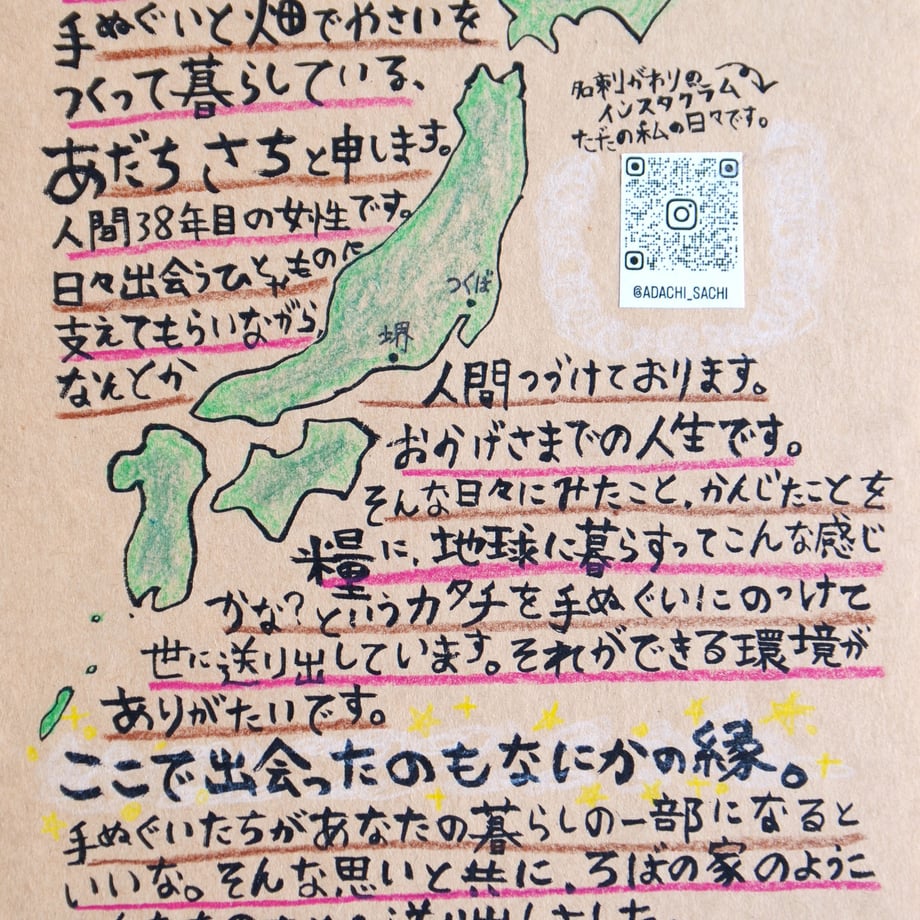 手ぬぐいと畑でやさいを
つくって暮らしている、
あだち さちと申します。
人間38年目の女性です。
日々出会うひとやものに
支えてもらいながら、
なんとか
人間つづけております。
名刺がわりの
インスタグラム
ただの私の日々です。
@ADACHI_SACHI
つくば
堺
おかげさまでの人生です。
そんな日々にみたこと、かんじたことを
糧に、地球に暮らすってこんな感じ
かな?というカタチを手ぬぐいにのっけて
世に送り出しています。それができる環境が
ありがたいです。
ここで出会ったのもなにかの縁。
手ぬぐいたちがあなたの暮らしの一部になると
いいな。そんな思いと共に、ろばの家のように